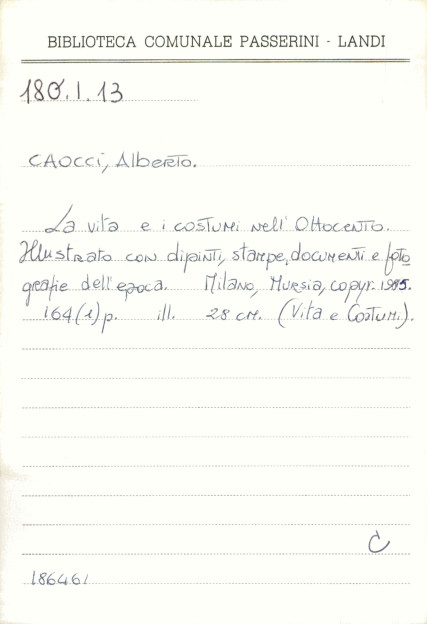 BIBLIOTECA COMUNALE PASSERINI - LANDI
180.I.13
CAOCCI, Alberto.
La vita e i costumi nell'Ottocento.
Illustrato con dipinti, stampe, documenti e foto
grafie dell'epoca. Milano, Mursia, copyr. 1985.
164(1)p. ill. 28 cm. (Vita e Costumi).
C
186461